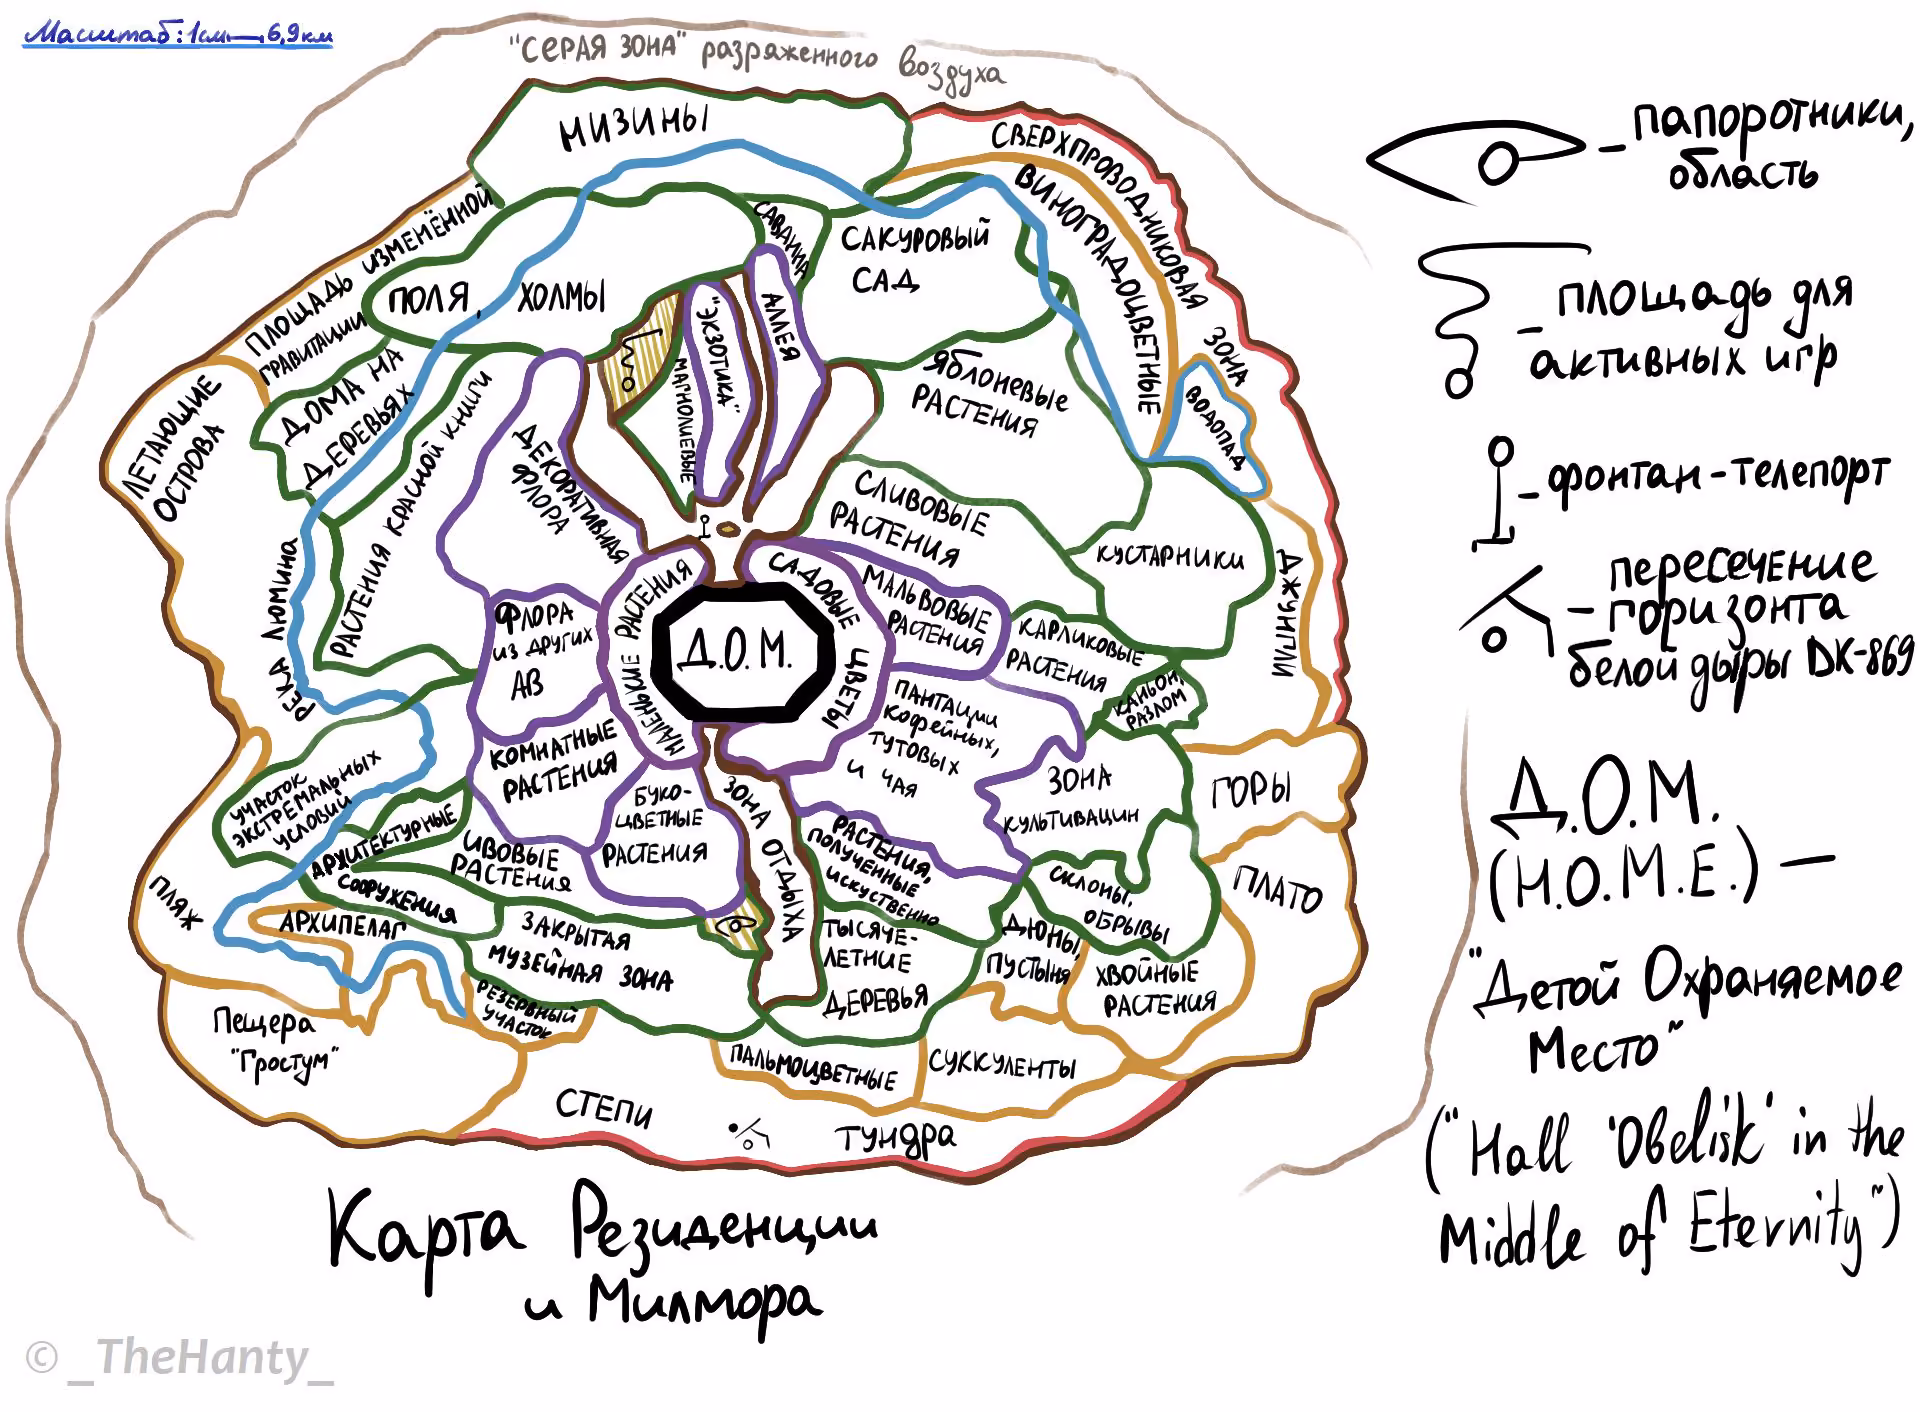 Масштаб: 1см — 6,9км
"СЕРАЯ ЗОНА" разряженного воздуха
МИЗИНЫ
СВЕРХПРОВОДНИКОВАЯ ЗОНА
ВИНОГРАДОЦВЕТНЫЕ
ПЛОЩАДЬ ИЗМЕНЁННОЙ
ГРАВИТАЦИИ
ПОЛЯ, ХОЛМЫ
САВАННА
САКУРОВЫЙ
САД
АЛЛЕЯ
"ЭКЗОТИКА"
МАГНОЛИЕВЫЕ
ДОМА НА
ДЕРЕВЬЯХ
ЛЕТАЮЩИЕ
ОСТРОВА
РАСТЕНИЯ КРАСНОЙ КНИГИ
ДЕКОРАТИВНАЯ
ФЛОРА
ЯБЛОНЕВЫЕ
РАСТЕНИЯ
ВОДОПАД
СЛИВОВЫЕ
РАСТЕНИЯ
КУСТАРНИКИ
ДЖУНГЛИ
РЕКА ЛЮМИНА
ФЛОРА
ИЗ ДРУГИХ
АВ
МАЛЕНЬКИЕ РАСТЕНИЯ
Д.О.М.
САДОВЫЕ ЦВЕТЫ
МАЛЬВОВЫЕ
РАСТЕНИЯ
КАРЛИКОВЫЕ
РАСТЕНИЯ
КАНЬОН,
РАЗЛОМ
ПАНТАЦИИ
КОФЕЙНЫХ,
ТУТОВЫХ
И ЧАЯ
ЗОНА
КУЛЬТИВАЦИИ
ГОРЫ
УЧАСТОК
ЭКСТРЕМАЛЬНЫХ
УСЛОВИЙ
КОМНАТНЫЕ
РАСТЕНИЯ
БУКО-
ЦВЕТНЫЕ
РАСТЕНИЯ
ЗОНА ОТДЫХА
РАСТЕНИЯ,
ПОЛУЧЕННЫЕ
ИСКУСТВЕННО
СКЛОНЫ,
ОБРЫВЫ
ПЛАТО
АРХИТЕКТУРНЫЕ
СООРУЖЕНИЯ
ИВОВЫЕ
РАСТЕНИЯ
ПЛЯЖ
АРХИПЕЛАГ
ЗАКРЫТАЯ
МУЗЕЙНАЯ ЗОНА
ТЫСЯЧЕ-
ЛЕТНИЕ
ДЕРЕВЬЯ
ДЮНЫ,
ПУСТЫНЯ
ХВОЙНЫЕ
РАСТЕНИЯ
РЕЗЕРВНЫЙ
УЧАСТОК
Пещера
"Гростум"
ПАЛЬМОЦВЕТНЫЕ
СУККУЛЕНТЫ
СТЕПИ
ТУНДРА
Карта Резиденции
и Милмора
– папоротники,
область
– площадь для
активных игр
– фонтан-телепорт
– пересечение
горизонта
белой дыры DK-869
Д.О.М.
(H.O.M.E.) —
"Детой Охраняемое
Место"
("Hall 'Obelisk' in the
Middle of Eternity")
© _TheHanty_